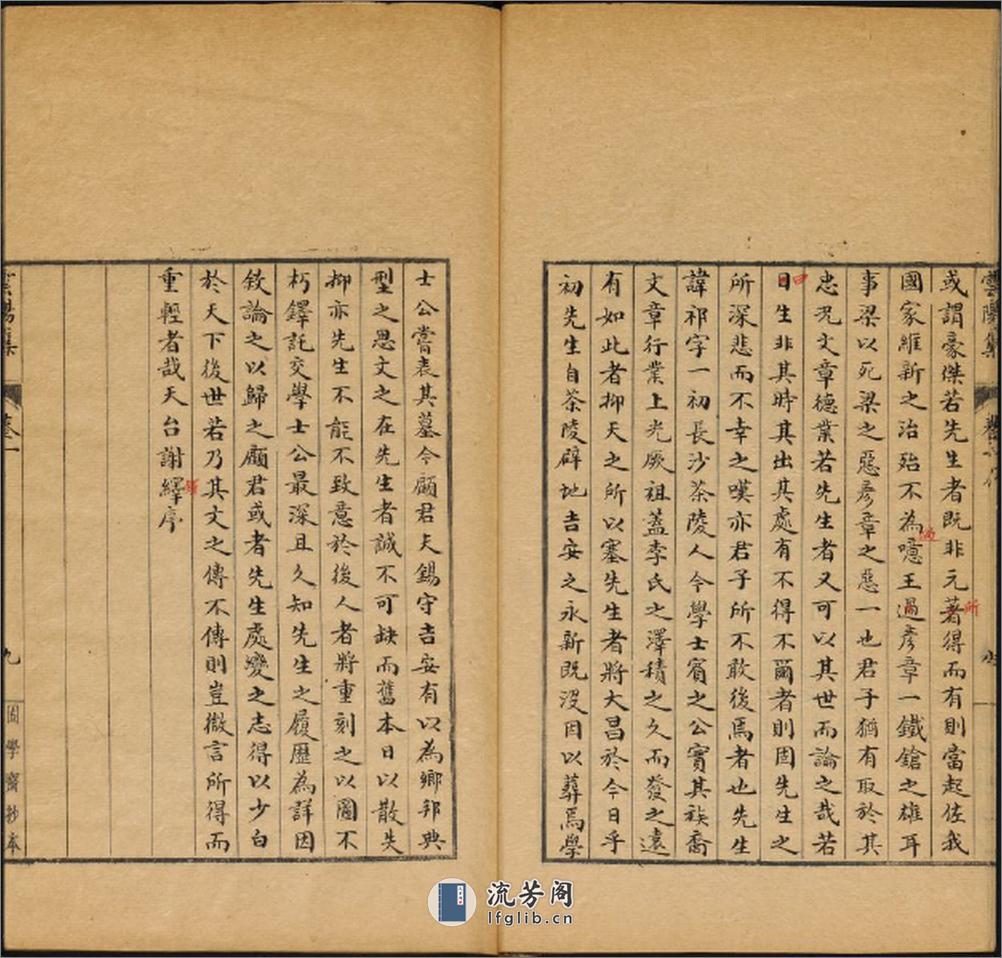 雲陽集
或謂豪傑若先生者既非元著得而有則當起佐我
所
國家維新之治殆不為噫王過彥章一鐵鎗之雄耳
過
事梁以死梁之惡彥章之惡一也君子猶有取於其
忠况文章德業若先生者又可以其世而論之哉若
日生非其時其出其處有不得不爾者則固先生之
曰
所深悲而不幸之嘆亦君子所不敢後焉者也先生
諱祁字一初長沙茶陵人今學士賓之公實其族裔
文章行業上光厥祖蓋李氏之澤積之久而發之遠
有如此者抑天之所以塞先生者將大昌於今日乎
初先生自茶陵辟地吉安之永新既沒因以葬焉學
士公嘗表其墓今顧君天錫守吉安有以為鄉邦典
型之思文之在先生者誠不可缺而舊本日以散失
抑亦先生不能不致意於後人者將重刻之以圖不
朽鐸託交學士公最深且久知先生之履歷為詳因
敘論之以歸之顧君或者先生處變之志得以少白
於天下後世若乃其文之傳不傳則豈微言所得而
重輕者哉天台謝繹序
鐸
雲陽集
卷一
九
困學齋抄本
流芳阁
lfglib.cn